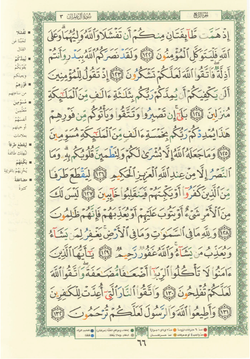 سُورَةُ آلِ عِمْرَانَ ٣
إِذْ هَمَّت طَّآئِفَتَانِ مِنكُمْ أَن تَفْشَلَا وَٱللَّهُ وَلِيُّهُمَا وَعَلَى
ٱللَّهِ فَلْيَتَوَكَّلِ ٱلْمُؤْمِنُونَ ١٢٢ وَلَقَدْ نَصَرَكُمُ ٱللَّهُ بِبَدْرٍ وَأَنتُمْ
أَذِلَّةٌ فَٱتَّقُوا۟ ٱللَّهَ لَعَلَّكُمْ تَشْكُرُونَ ١٢٣ إِذْ تَقُولُ لِلْمُؤْمِنِينَ
أَلَن يَكْفِيَكُمْ أَن يُمِدَّكُمْ رَبُّكُم بِثَلَـٰثَةِ ءَالَـٰفٍ مِّنَ ٱلْمَلَـٰٓئِكَةِ
مُنزَلِينَ ١٢٤ بَلَىٰٓ إِن تَصْبِرُوا۟ وَتَتَّقُوا۟ وَيَأْتُوكُم مِّن فَوْرِهِمْ
هَـٰذَا يُمْدِدْكُمْ رَبُّكُم بِخَمْسَةِ ءَالَـٰفٍ مِّنَ ٱلْمَلَـٰٓئِكَةِ مُسَوِّمِينَ
١٢٥ وَمَا جَعَلَهُ ٱللَّهُ إِلَّا بُشْرَىٰ لَكُمْ وَلِتَطْمَئِنَّ قُلُوبُكُم بِهِۦ وَمَا
ٱلنَّصْرُ إِلَّا مِنْ عِندِ ٱللَّهِ ٱلْعَزِيزِ ٱلْحَكِيمِ ١٢٦ لِيَقْطَعَ طَرَفًا
مِّنَ ٱلَّذِينَ كَفَرُوٓا۟ أَوْ يَكْبِتَهُمْ فَيَنقَلِبُوا۟ خَآئِبِينَ ١٢٧ لَيْسَ لَكَ
مِنَ ٱلْأَمْرِ شَىْءٌ أَوْ يَتُوبَ عَلَيْهِمْ أَوْ يُعَذِّبَهُمْ فَإِنَّهُمْ ظَـٰلِمُونَ ١٢٨
وَلِلَّهِ مَا فِى ٱلسَّمَـٰوَٰتِ وَمَا فِى ٱلْأَرْضِ يَغْفِرُ لِمَن يَشَآءُ
وَيُعَذِّبُ مَن يَشَآءُ وَٱللَّهُ غَفُورٌ رَّحِيمٌ ١٢٩ يَـٰٓأَيُّهَا ٱلَّذِينَ
ءَامَنُوا۟ لَا تَأْكُلُوا۟ ٱلرِّبَوٰٓا۟ أَضْعَـٰفًا مُّضَـٰعَفَةً وَٱتَّقُوا۟ ٱللَّهَ
لَعَلَّكُمْ تُفْلِحُونَ ١٣٠ وَٱتَّقُوا۟ ٱلنَّارَ ٱلَّتِىٓ أُعِدَّتْ لِلْكَـٰفِرِينَ
١٣١ وَأَطِيعُوا۟ ٱللَّهَ وَٱلرَّسُولَ لَعَلَّكُمْ تُرْحَمُونَ ١٣٢
٦٦